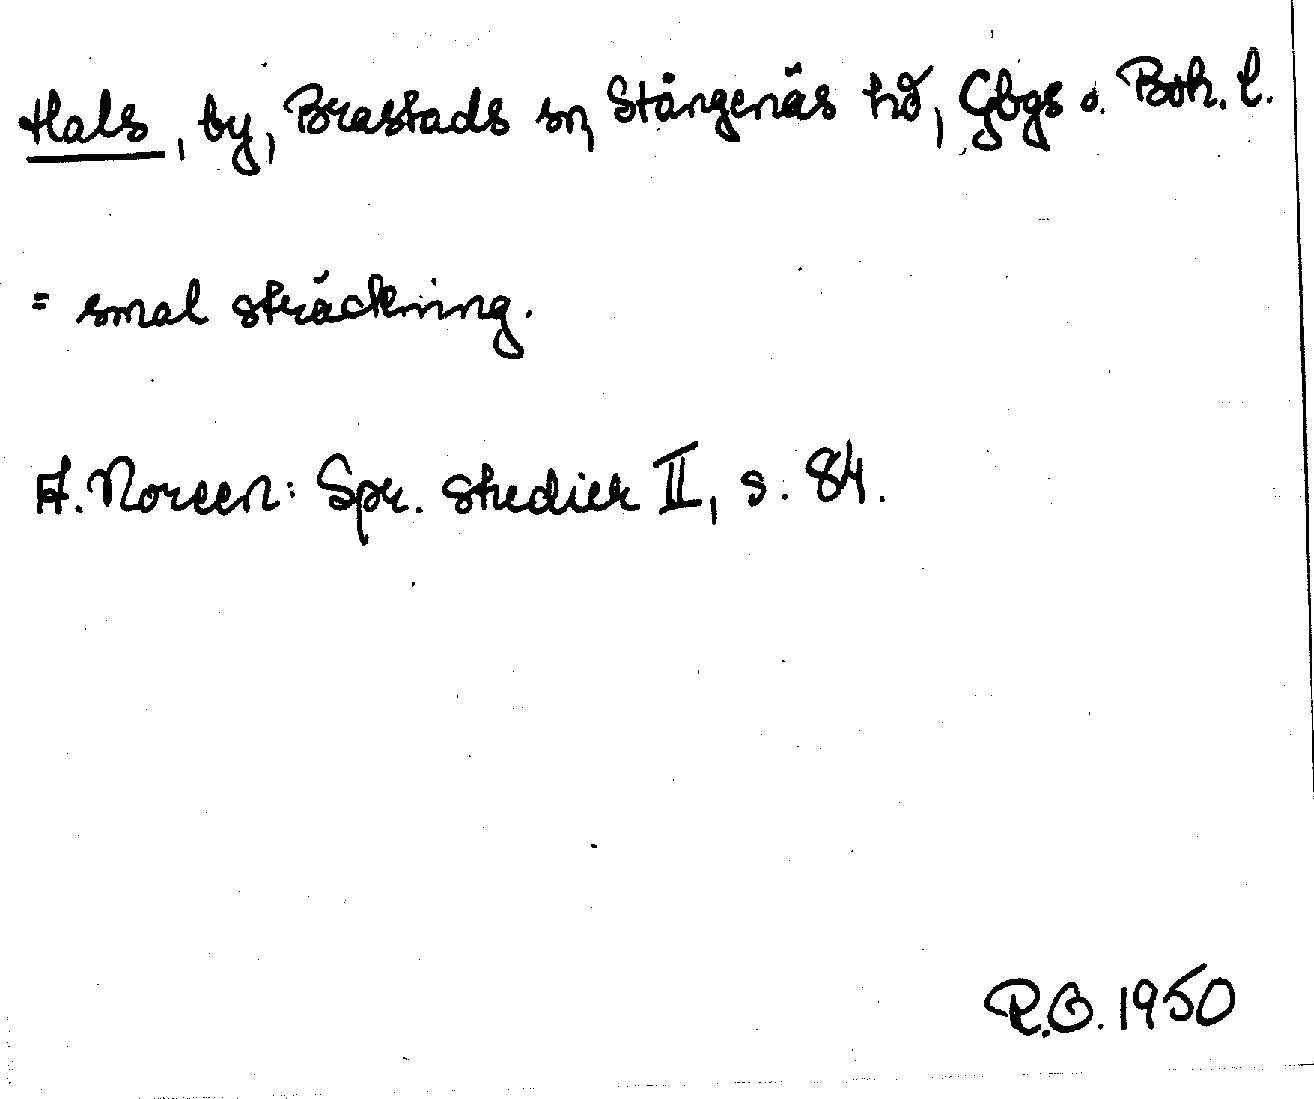 Hals, by, Brastads sn, Stångenäs hd, Gbgs o. Boh. l.
= smal sträckning.
A. Noreen: Spr. studier II, s. 84.
R.O. 1950